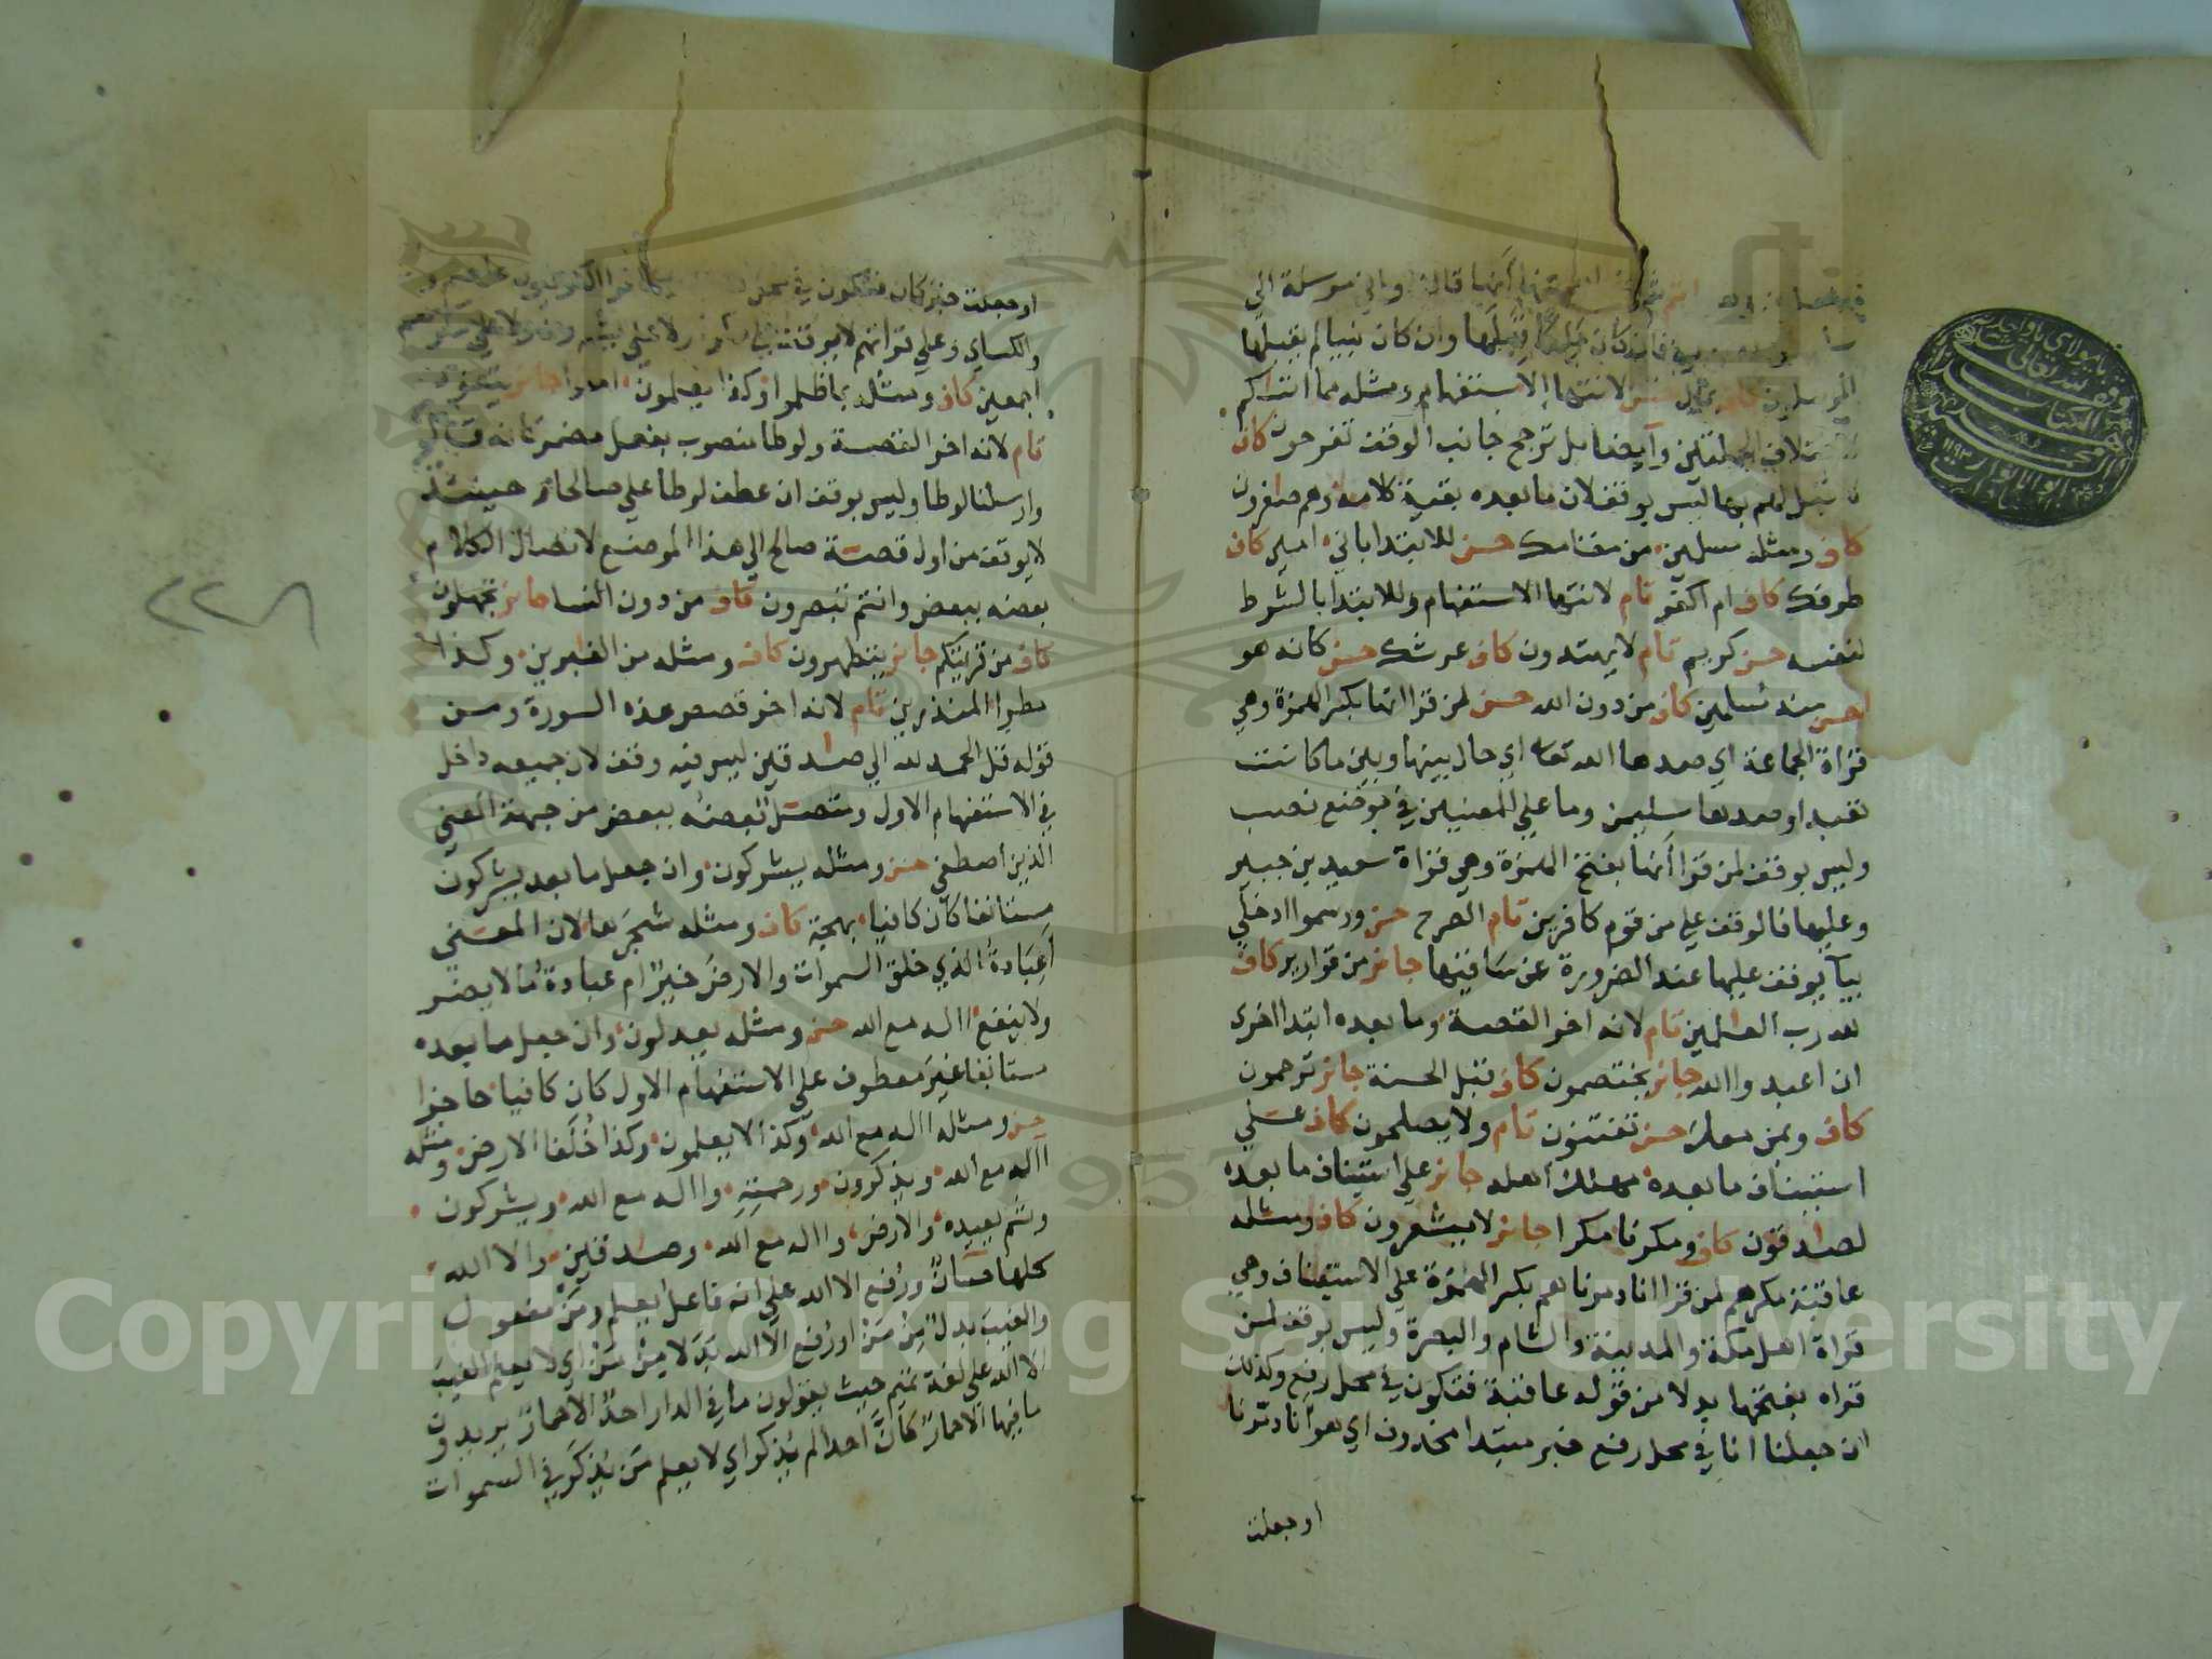 انها قالت واني مرسلة الي
فان كان ملكا قبلها وان كان نبيا لم يقبلها
المرسلون كاف بمال حسن لانتها الاستفهام ومثله مما اتاكم
وايضا بل ترجح جانب الوقف تفرحون كاف
لا قبل لهم بها ليس بوقف لان ما بعده بقية كلامه وهم صاغرون
كاف ومثله مسلمين من مقامك حسن للابتدا باني امين كاف
طرفك كاف ام اكفر تام لانتها الاستفهام وللابتدا بالشرط
لنفسه حسن كريم تام لا يهتدون كاف عرشك حسن كانه هو
احسن منه مسلمين كاف من دون الله حسن لمن قرا انها بكسر الهمزة وهي
قراة الجماعة اي صدها الله تعا اي حال بينها وبين ما كانت
تعبد او صدها سليمن وما علي المعنيين في موضع نصب
وليس بوقف لمن قرا أنها بفتح الهمزة وهي قراة سعيد بن جبير
وعليها فالوقف علي من قوم كافرين تام الصرح حسن ورسموا ادخلي
بيآ يوقف عليها عند الضرورة عن ساقيها جائز من قوارير كاف
لله رب العلمين تام لانه اخر القصة وما بعده ابتدا اخرى
ان اعبدوا الله جائز يختصمون كاف قبل الحسنة جائز ترحمون
كاف وبمن معك حسن تفتنون تام ولا يصلحون كاف علي
استيناف ما بعده مهلك اهله جائز علي استيناف ما بعده
لصادقون كاف ومكرنا مكرا جائز لا يشعرون كاف ومثله
عاقبة مكرهم لمن قرا انا دمرناهم بكسر الهمزة علي الاستيناف وهي
قراة اهل مكة والمدينة والشام والبصرة وليس بوقف لمن
قراه بفتحها بدلا من قوله عاقبة فتكون في محل رفع وكذلك
ان جعلنا انا في محل رفع خبر مبتدا محذوف اي هو أنا دمرنا
او جعلت
او جعلت خبر كان فتكون في محل الكوفيون عاصم
والكساي وعلي قراتهم لا يوقف علي
اجمعين كاف ومثله بما ظلموا وكذا يعلمون امنوا جائز يتقون
تام لانه اخر القصة ولوطا منصوب بفعل مضمر كانه قال
وارسلنا لوطا وليس بوقف ان عطف لوطا علي صالحا وحينئذ
لا يوقف من اول قصة صالح الي هذا الموضع لاتصال الكلام
بعضه ببعض وانتم تبصرون كاف من دون النسا جائز تجهلون
كاف من قريتكم جائز يتطهرون كاف ومثله من الغابرين وكذا
مطرا المنذرين تام لانه اخر قصص هذه السورة ومن
قوله قل الحمد لله الي صادقين ليس فيه وقف لان جميعه داخل
في الاستفهام الاول ومتصل بعضه ببعض من جهة المعني
الذين اصطفي حسن ومثله يشركون وان جعل ما بعد يشركون
مستانفا كان كافيا بهجة كاف ومثله شجرها لان المعني
أعبادة الذي خلق السموات والارض خير ام عبادة ما لا يضر
ولا ينفع االه مع الله حسن ومثله يعدلون وان جعل ما بعده
مستانفا غير معطوف علي الاستفهام الاول كان كافيا حاجزا
حسن ومثله االه مع الله وكذا لا يعلمون وكذا خلفا الارض ومثله
االه مع الله ويذكرون ورحمته وااله مع الله ويشركون
وثم يعيده والارض وااله مع الله وصادقين والا الله
كلها حسان ورفع الا الله علي انه فاعل يعلم ومن مفعول
والغيب بدل من من او رفع الا الله بدلا من من اي لا يعلم الغيب
الا الله علي لغة تميم حيث يقولون ما في الدار احد الا حمار يريدون
ما فيها الا حمار كان احدا لم يذكر اي لا يعلم من يذكر في السموات
٢٢٨
Copyright © King Saud University
1957